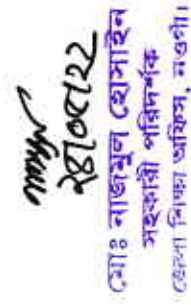 ২৪/০৮/২২
মোঃ নাজমুল হোসাইন
সহকারী পরিদর্শক
জেলা শিক্ষা অফিস, নওগাঁ।